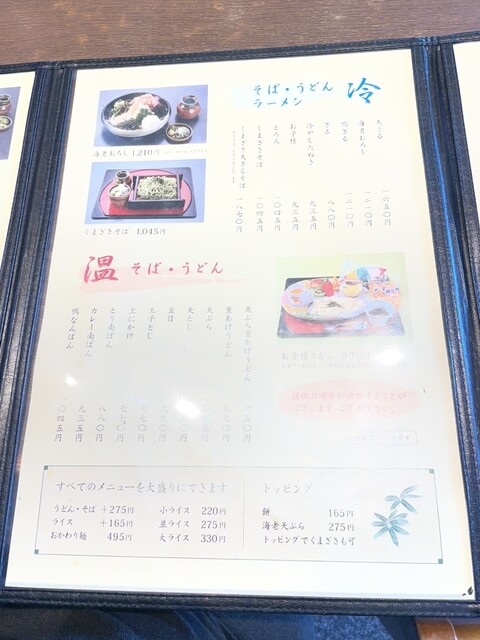 冷
そば・うどん
ラーメン
天ざる 一、六五〇円
海老おろし 一、二一〇円
鴨ざる 一、二一〇円
ざる 八八〇円
冷やしたぬき 九三五円
お子様 九三五円
とろろ 一、〇四五円
くまざさそば 一、〇四五円
くまざさ天ざるそば 一、八七〇円
海老おろし 1,210円
くまざさそば 1,045円
温 そば・うどん
天ぷら釜あげうどん
釜あげうどん
天ぷら
天とじ
五目
玉子とじ
上にかけ
とり南ばん 七七〇円
カレー南ばん 八八〇円
鴨なんばん 一、〇四五円
お子様うどん
すべてのメニューを大盛りにできます
うどん・そば +275円
ライス +165円
おかわり麺 495円
小ライス 220円
並ライス 275円
大ライス 330円
トッピング
餅 165円
海老天ぷら 275円
トッピングでくまざさも可